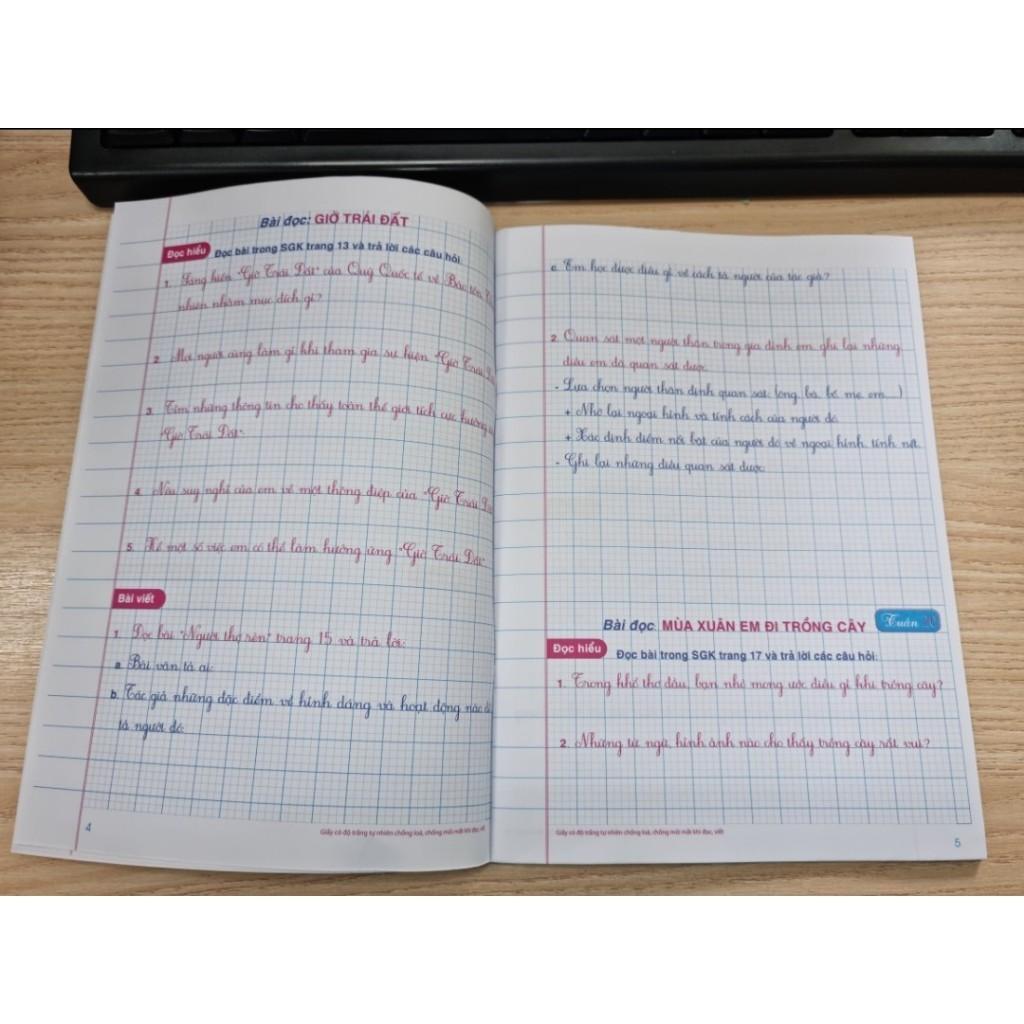 Bài đọc: GIỜ TRÁI ĐẤT
Đọc hiểu Đọc bài trong SGK trang 13 và trả lời các câu hỏi
1. Sáng kiến "Giờ Trái Đất" của Quỹ Quốc tế về Bảo tồn
nhiên nhằm mục đích gì?
2. Mọi người cùng làm gì khi tham gia sự kiện "Giờ Trái Đất
3. Tìm những thông tin cho thấy toàn thế giới tích cực hưởng
"Giờ Trái Đất".
4. Nêu suy nghĩ của em về một thông điệp của "Giờ Trái Đất
5. Kể một số việc em có thể làm hưởng ứng "Giờ Trái Đất"
Bài viết
1. Đọc bài "Người thợ rèn" trang 15 và trả lời:
a. Bài văn tả ai:
b. Tác giả những đặc điểm về hình dáng và hoạt động nào
tả người đó:
4
Giấy có độ trắng tự nhiên chống loá, chống mỏi mắt khi đọc, viết
c. Em học được điều gì về cách tả người của tác giả?
2. Quan sát một người thân trong gia đình em, ghi lại những
điều em đã quan sát được.
- Lựa chọn người thân định quan sát: (ông, bà, bố, mẹ, em...)
+ Nhớ lại ngoại hình và tính cách của người đó.
+ Xác định điểm nổi bật của người đó về ngoại hình, tính nết.
- Ghi lại những điều quan sát được.
Tuần 20
Bài đọc: MÙA XUÂN EM ĐI TRỒNG CÂY
Đọc hiểu Đọc bài trong SGK trang 17 và trả lời các câu hỏi:
1. Trong khổ thơ đầu, bạn nhỏ mong ước điều gì khi trồng cây?
2. Những từ ngữ, hình ảnh nào cho thấy trồng cây rất vui?
Giấy có độ trắng tự nhiên chống loá, chống mỏi mắt khi đọc, viết
5